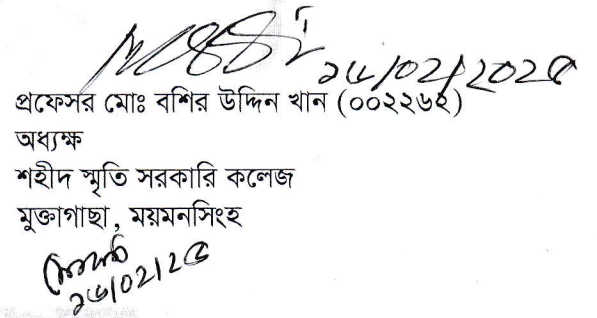 ১৬/০২/২০২৫
প্রফেসর মোঃ বশির উদ্দিন খান (০০২২৬২)
অধ্যক্ষ
শহীদ স্মৃতি সরকারি কলেজ
মুক্তাগাছা, ময়মনসিংহ
১৬/০২/২৫